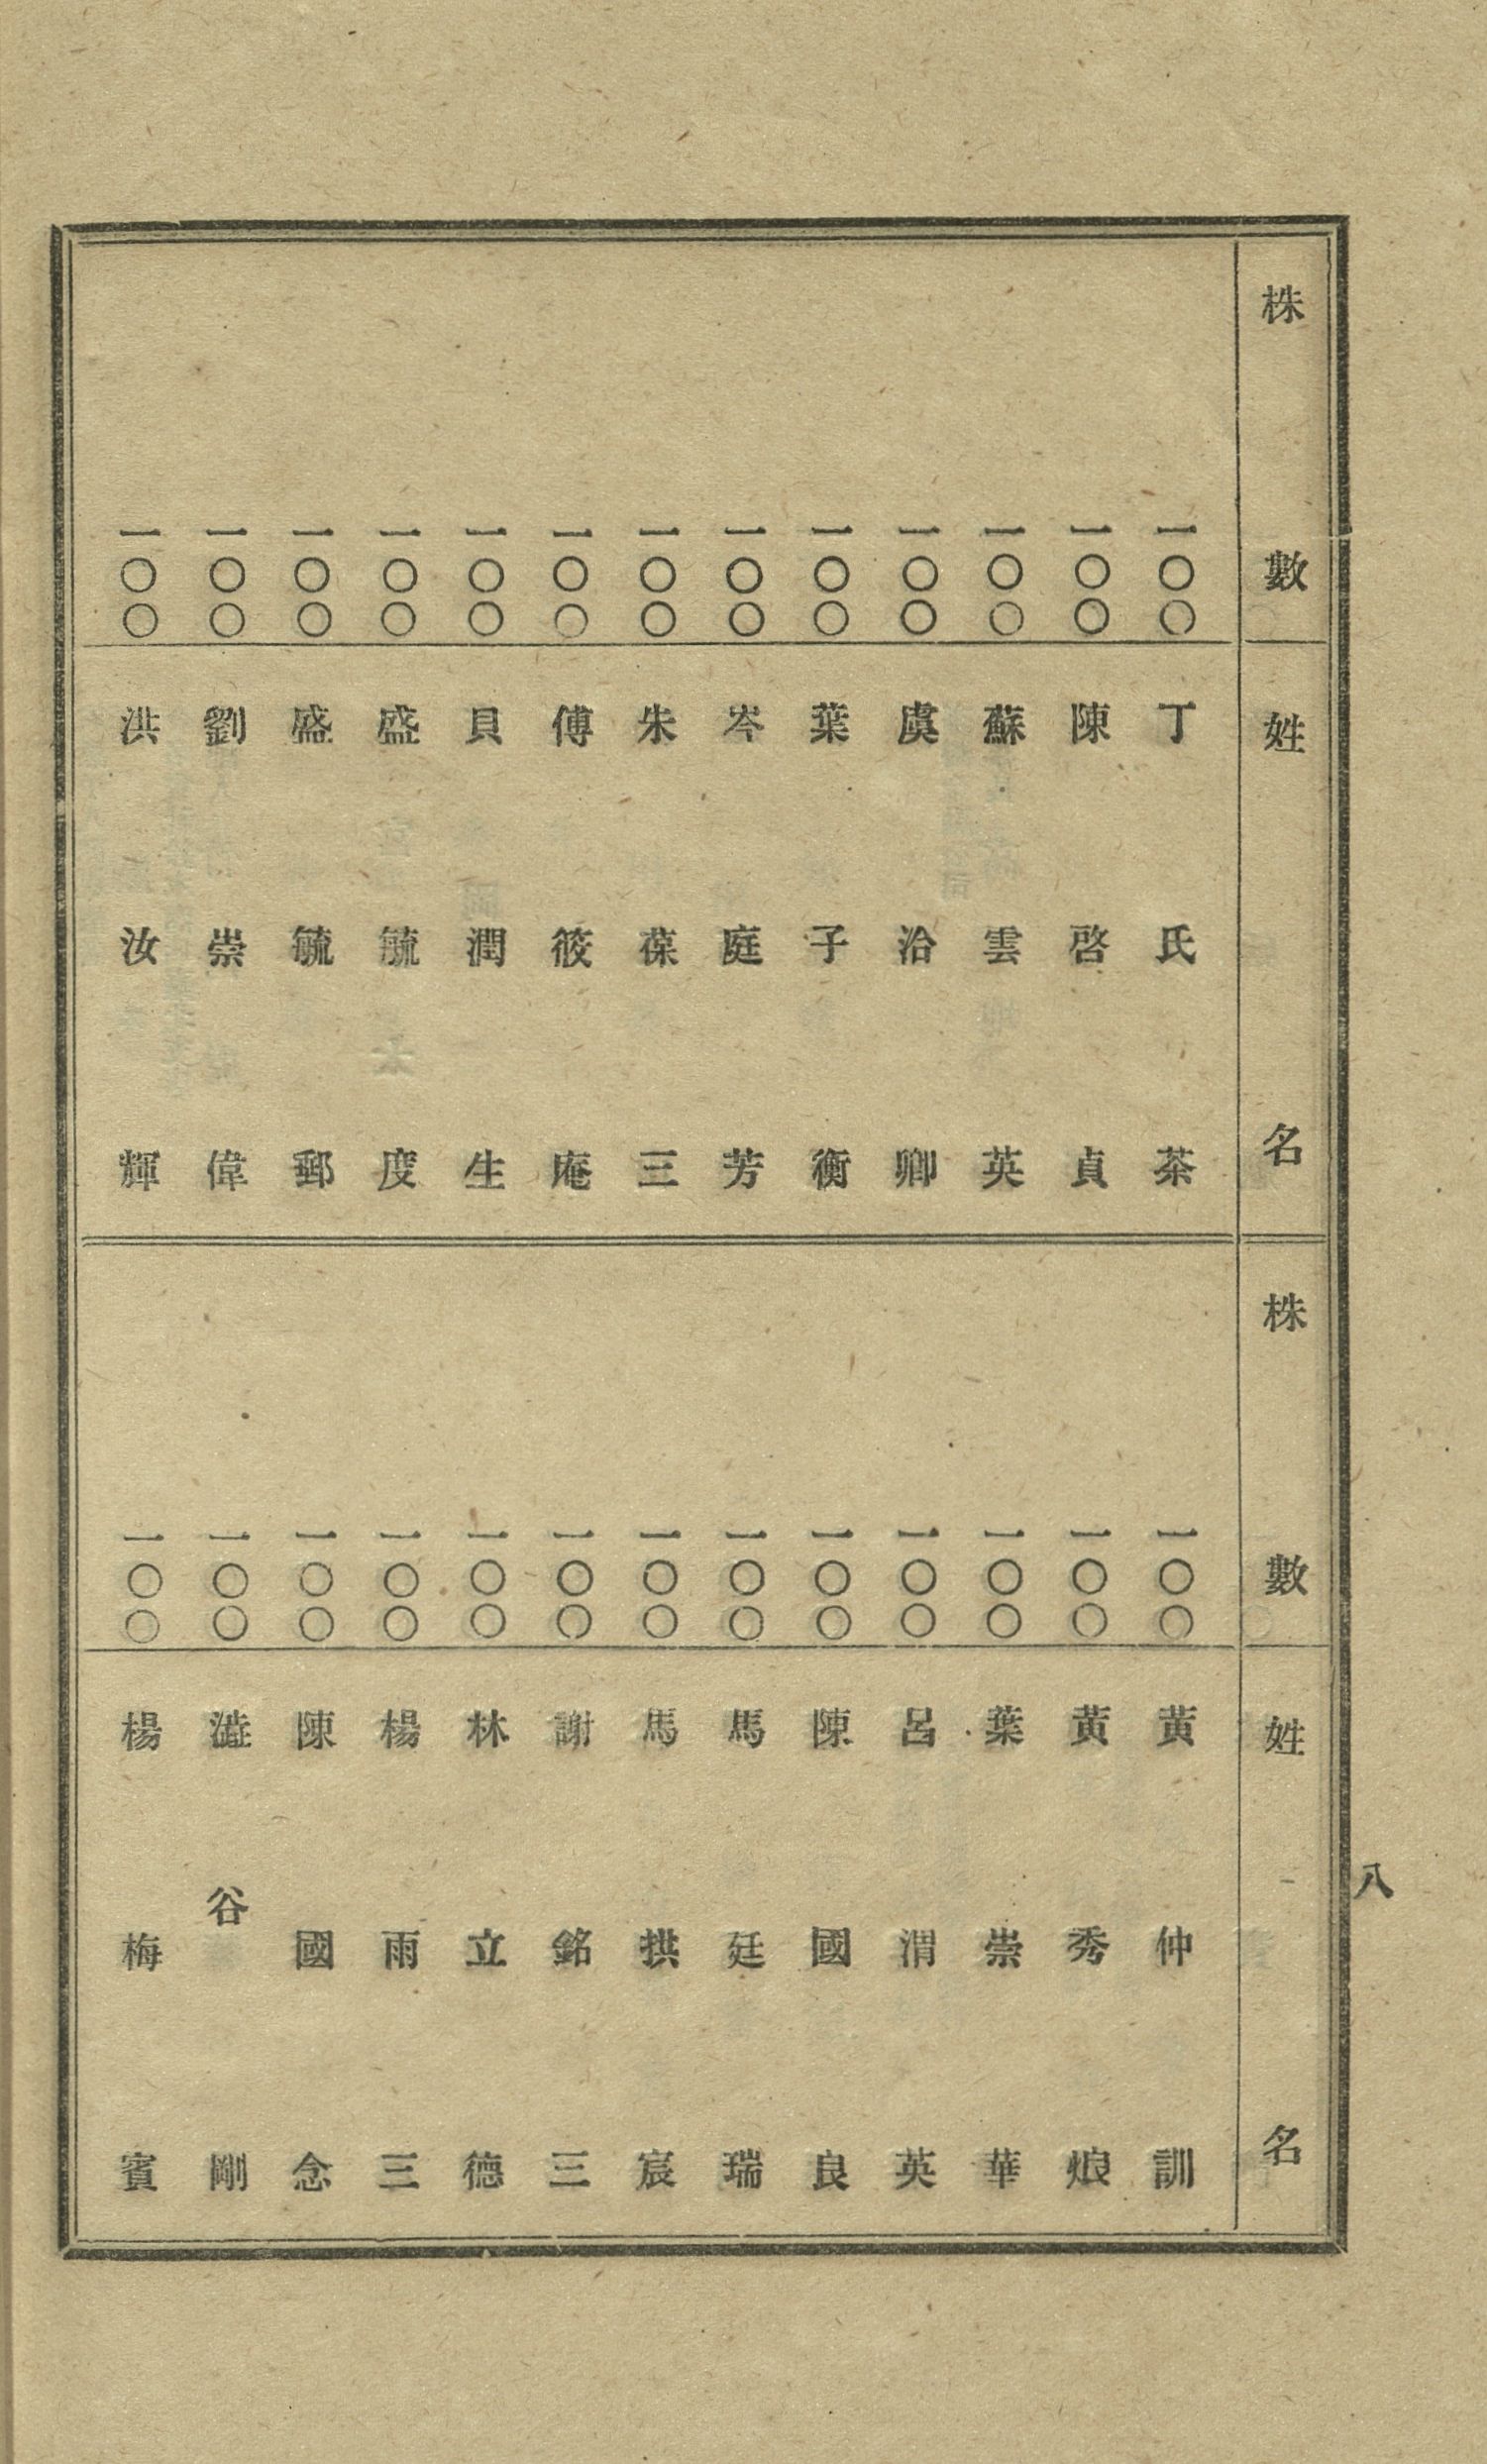 八
株數 姓名
一〇〇 丁氏茶
一〇〇 陳啓貞
一〇〇 蘇雲英
一〇〇 虞洽卿
一〇〇 葉子衡
一〇〇 岑庭芳
一〇〇 朱葆三
一〇〇 傅筱庵
一〇〇 貝潤生
一〇〇 盛毓度
一〇〇 盛毓郵
一〇〇 劉崇偉
一〇〇 洪汝輝
株數 姓名
一〇〇 黄仲訓
一〇〇 黄秀烺
一〇〇 葉崇華
一〇〇 呂渭英
一〇〇 陳國良
一〇〇 馬廷瑞
一〇〇 馬拱宸
一〇〇 謝銘三
一〇〇 林立德
一〇〇 楊雨三
一〇〇 陳國念
一〇〇 澁谷剛
一〇〇 楊梅賓